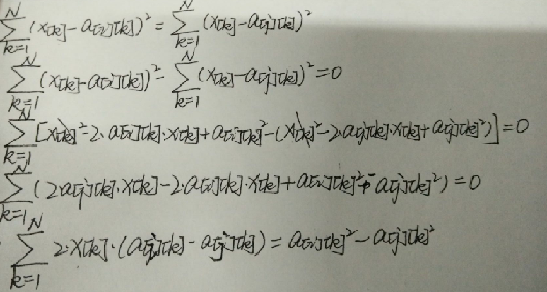 \sum_{k=1}^{N} (x[k]-a[i][k])^2 = \sum_{k=1}^{N} (x[k]-a[j][k])^2
\sum_{k=1}^{N} (x[k]-a[i][k])^2 - \sum_{k=1}^{N} (x[k]-a[j][k])^2 = 0
\sum_{k=1}^{N} [x[k]^2-2·a[i][k]·x[k]+a[i][k]^2-(x[k]^2-2·a[j][k]·x[k]+a[j][k]^2)] = 0
\sum_{k=1}^{N} (2·a[j][k]·x[k]-2·a[i][k]·x[k]+a[i][k]^2-a[j][k]^2) = 0
\sum_{k=1}^{N} 2·x[k]·(a[i][k]-a[j][k]) = a[i][k]^2-a[j][k]^2